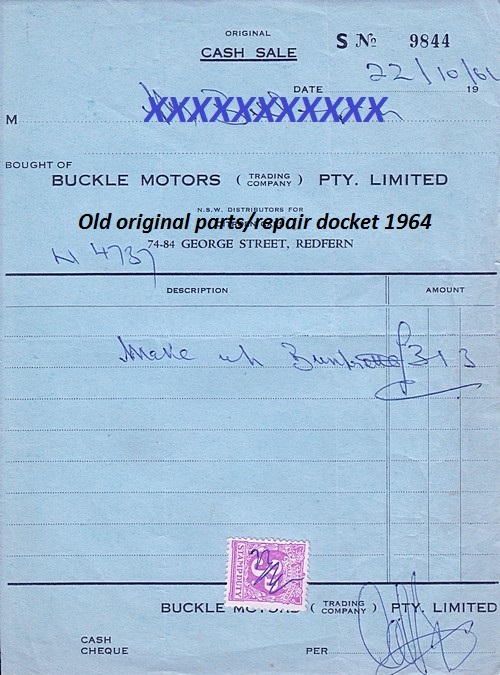 ORIGINAL
CASH SALE
S No 9844
DATE 22/10/61 19
M XXXXXXXXXXXX
BOUGHT OF
BUCKLE MOTORS ( TRADING COMPANY ) PTY. LIMITED
N.S.W. DISTRIBUTORS FOR
Old original parts/repair docket 1964
74-84 GEORGE STREET, REDFERN
N 4737
DESCRIPTION AMOUNT
Make up £3 1 3
STAMP DUTY
BUCKLE MOTORS ( TRADING COMPANY ) PTY. LIMITED
CASH
CHEQUE PER